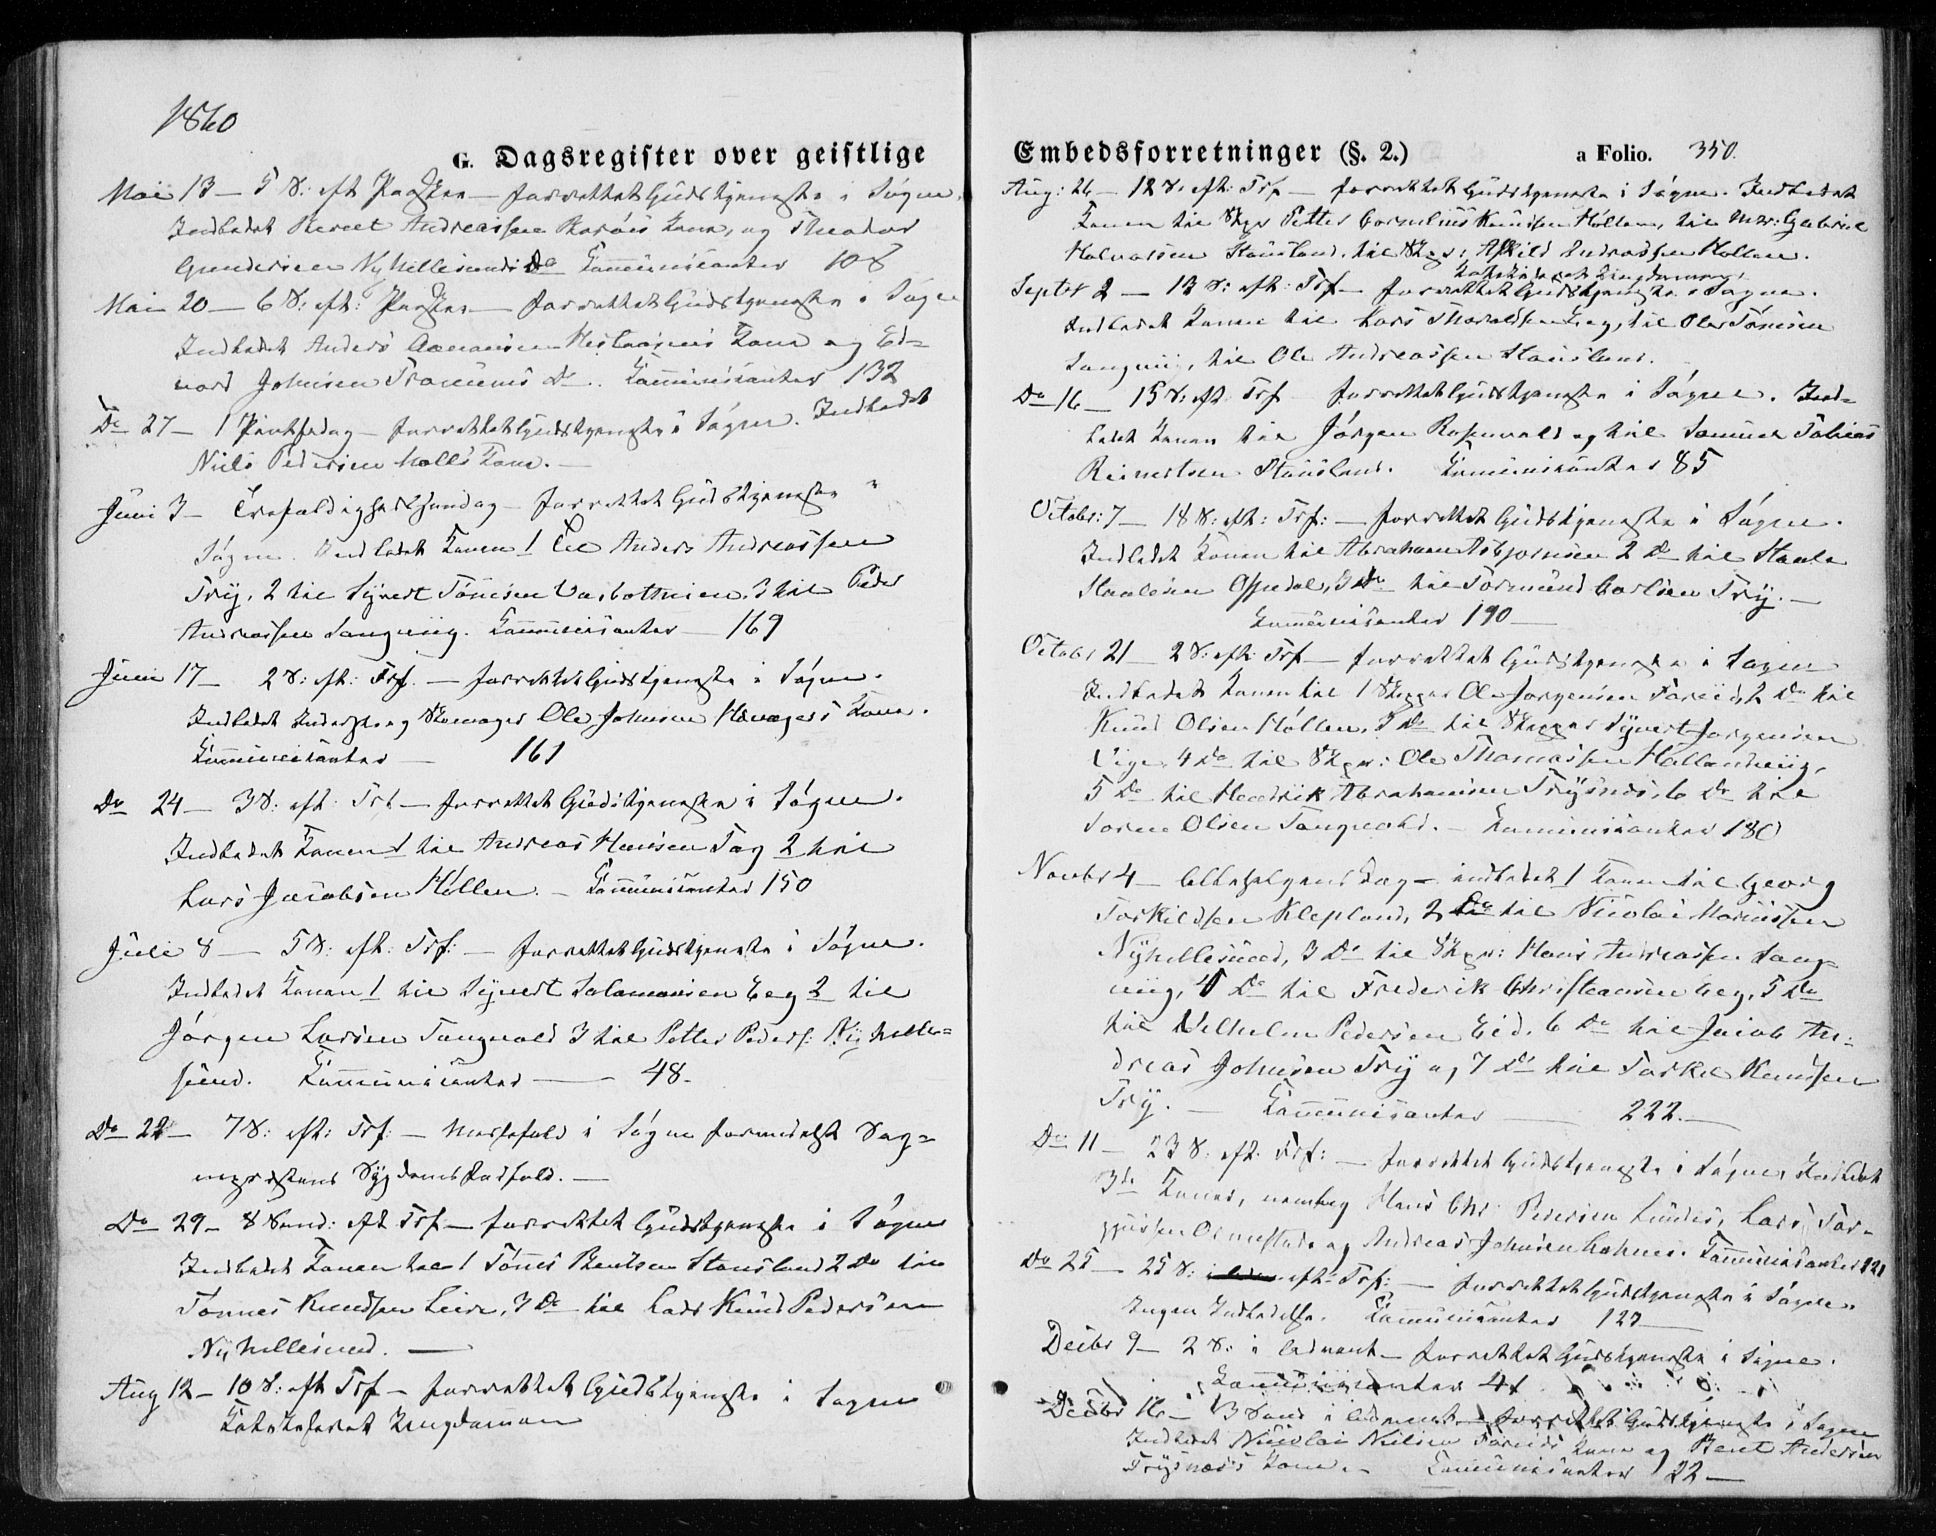 1860
G. Dagsregister over geistlige
Mai 13 – 5 S: eft Paasken – forrettet Gudstjeneste i Søgne.
Indledet Berent Andreassen Kone, og Theodor
Gundersen Ny Hellesunds Do Communicanter 108
Mai 20 – 6 S: eft: Paasken – forrettet Gudstjeneste i Søgne
Indledet Anders Kone og Ed-
vard Johnsen Do. Communicanter 132
Do 27 – 1 Pintsedag – forrettet Gudstjeneste i Søgne. Indledet
Niels Pedersen Kone. –
Juni 3 – Trefoldighedssøndag – forrettet Gudstjeneste i
Søgne. Indledet Konen 1 til Anders Andreassen
Try, 2 til Syvert Tønnesen 3 til Peder
Andreassen Langenig. Communicanter – 169
Juni 17 – 2 S: eft: Trf. – forrettet Gudstjeneste i Søgne.
Indledet og Skomager Ole Johnsen Kone.
Communicanter – 161
Do 24 – 3 S: eft Trf – forrettet Gudstjeneste i Søgne.
Indledet Konen 1 til Andreas Hansen Tag 2 til
Lars Jacobsen Høllen. – Communicanter 150
Juli 8 – 5 S: eft: Trf: – forrettet Gudstjeneste i Søgne.
Indledet Konen 1 til Syvert Salomonsen Eeg 2 til
Jørgen Larsen Tangvald 3 til Petter Peders: Ny Helle=
sund. Communicanter – 48.
Do 22 – 7 S: eft: Trf: – Messefald i Søgne formedelst Sog=
nepræstens Sygdomsforfald. –
Do 29 – 8 Sønd: eft Trf – forrettet Gudstjeneste i Søgne
Indledet Konen til 1 Tønnes Bentsen Stausland 2 Do til
Tønnes Knudsen 3 Do til Knud Pedersen
Ny Hellesund. –
Aug 12 – 10 S: eft Trf – forrettet Gudstjeneste i Søgne
Katekiseret Ungdommen
Embedsforretninger (§. 2.) a Folio. 350.
Aug: 26 – 12 S: eft: Trf – forrettet Gudstjeneste i Søgne. Indledet
Konen til Skpr Petter Cornelius Knudsen Høllen, til Gabriel
Halvorsen Stausland, til Skpr: Andreassen Høllen.
Katekiseret Ungdommen.
Septbr 2 – 13 S: eft: Trf – forrettet Gudstjeneste i Søgne.
Indledet Konen til Lars Eeg, til Ole Tønnesen
Langenig, til Ole Andreassen Stausland.
Do 16 – 15 S: eft Trf forrettet Gudstjeneste i Søgne. Ind=
ledet Konen til Jørgen Rosenvold og til Samuel Tobias
Reinertsen Stausland. Communicanter 85
Octobr: 7 – 18 S: eft: Trf: – forrettet Gudstjeneste i Søgne.
Indledet Konen til Abraham Asbjørnsen 2 Do til Staale
Staalesen 3 Do til Tormund Carlsen Try. –
Communicanter 190 –
Octobr 21 – 2 S: eft: Trf – forrettet Gudstjeneste i Søgne
Indledet Konen til 1 Skipper Ole Jørgensen 2 Do til
Knud Olsen Høllen, 3 Do til Skipper Syvert Jørgensen
Vige 4 Do til Skpr: Ole Thomassen
5 Do til Hendrik Abrahamsen Trysnes, 6 Do til
Olsen Tangvald. – Communicanter 180
Novbr 4 – Allehelgens Dag – indledet 1 Konen til Georg
Torkildsen Klepland, 2 Do til Nicolai
Nyhellesund, 3 Do til Skpr: Hans Andreassen Lang=
enig, 4 Do til Frederik Christensen Eeg, 5 Do
til Vilhelm Pedersen Eid. 6 Do til Jacob An=
dreas Johnsen Try og 7 Do til Torkel Knudsen
Try. – Communicanter – 222. –
Do 11 – 23 S: eft: Trf: – forrettet Gudstjeneste i Søgne, Indledet
3de Koner, nemlig Hans Chr. Pedersen Lunde, Lars Tor=
og Andreas Johnsen Communicanter 121
Do 25 – 25 S: eft: Trf: – forrettet Gudstjeneste i Søgne.
Ingen Indledelse. Communicanter 127 –
Decbr 9 – 2 S: i Advent – forrettet Gudstjeneste i Søgne.
Communicanter 41
Decbr 16 – 3 Sønd i Advent – forrettet Gudstjeneste i Søgne
Indledet Nicolai Nielsen Kone og Berent Andersen
Trysnes's Kone. – Communicanter 22 –